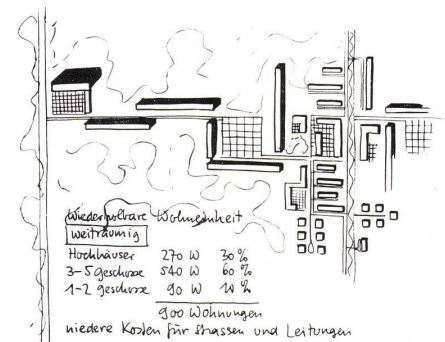 Wiederholbare Wohneinheit
weiträumig
Hochhäuser 270 W 30%
3-5 geschosse 540 W 60%
1-2 geschosse 90 W 10%
900 Wohnungen
niedere Kosten für Strassen und Leitungen